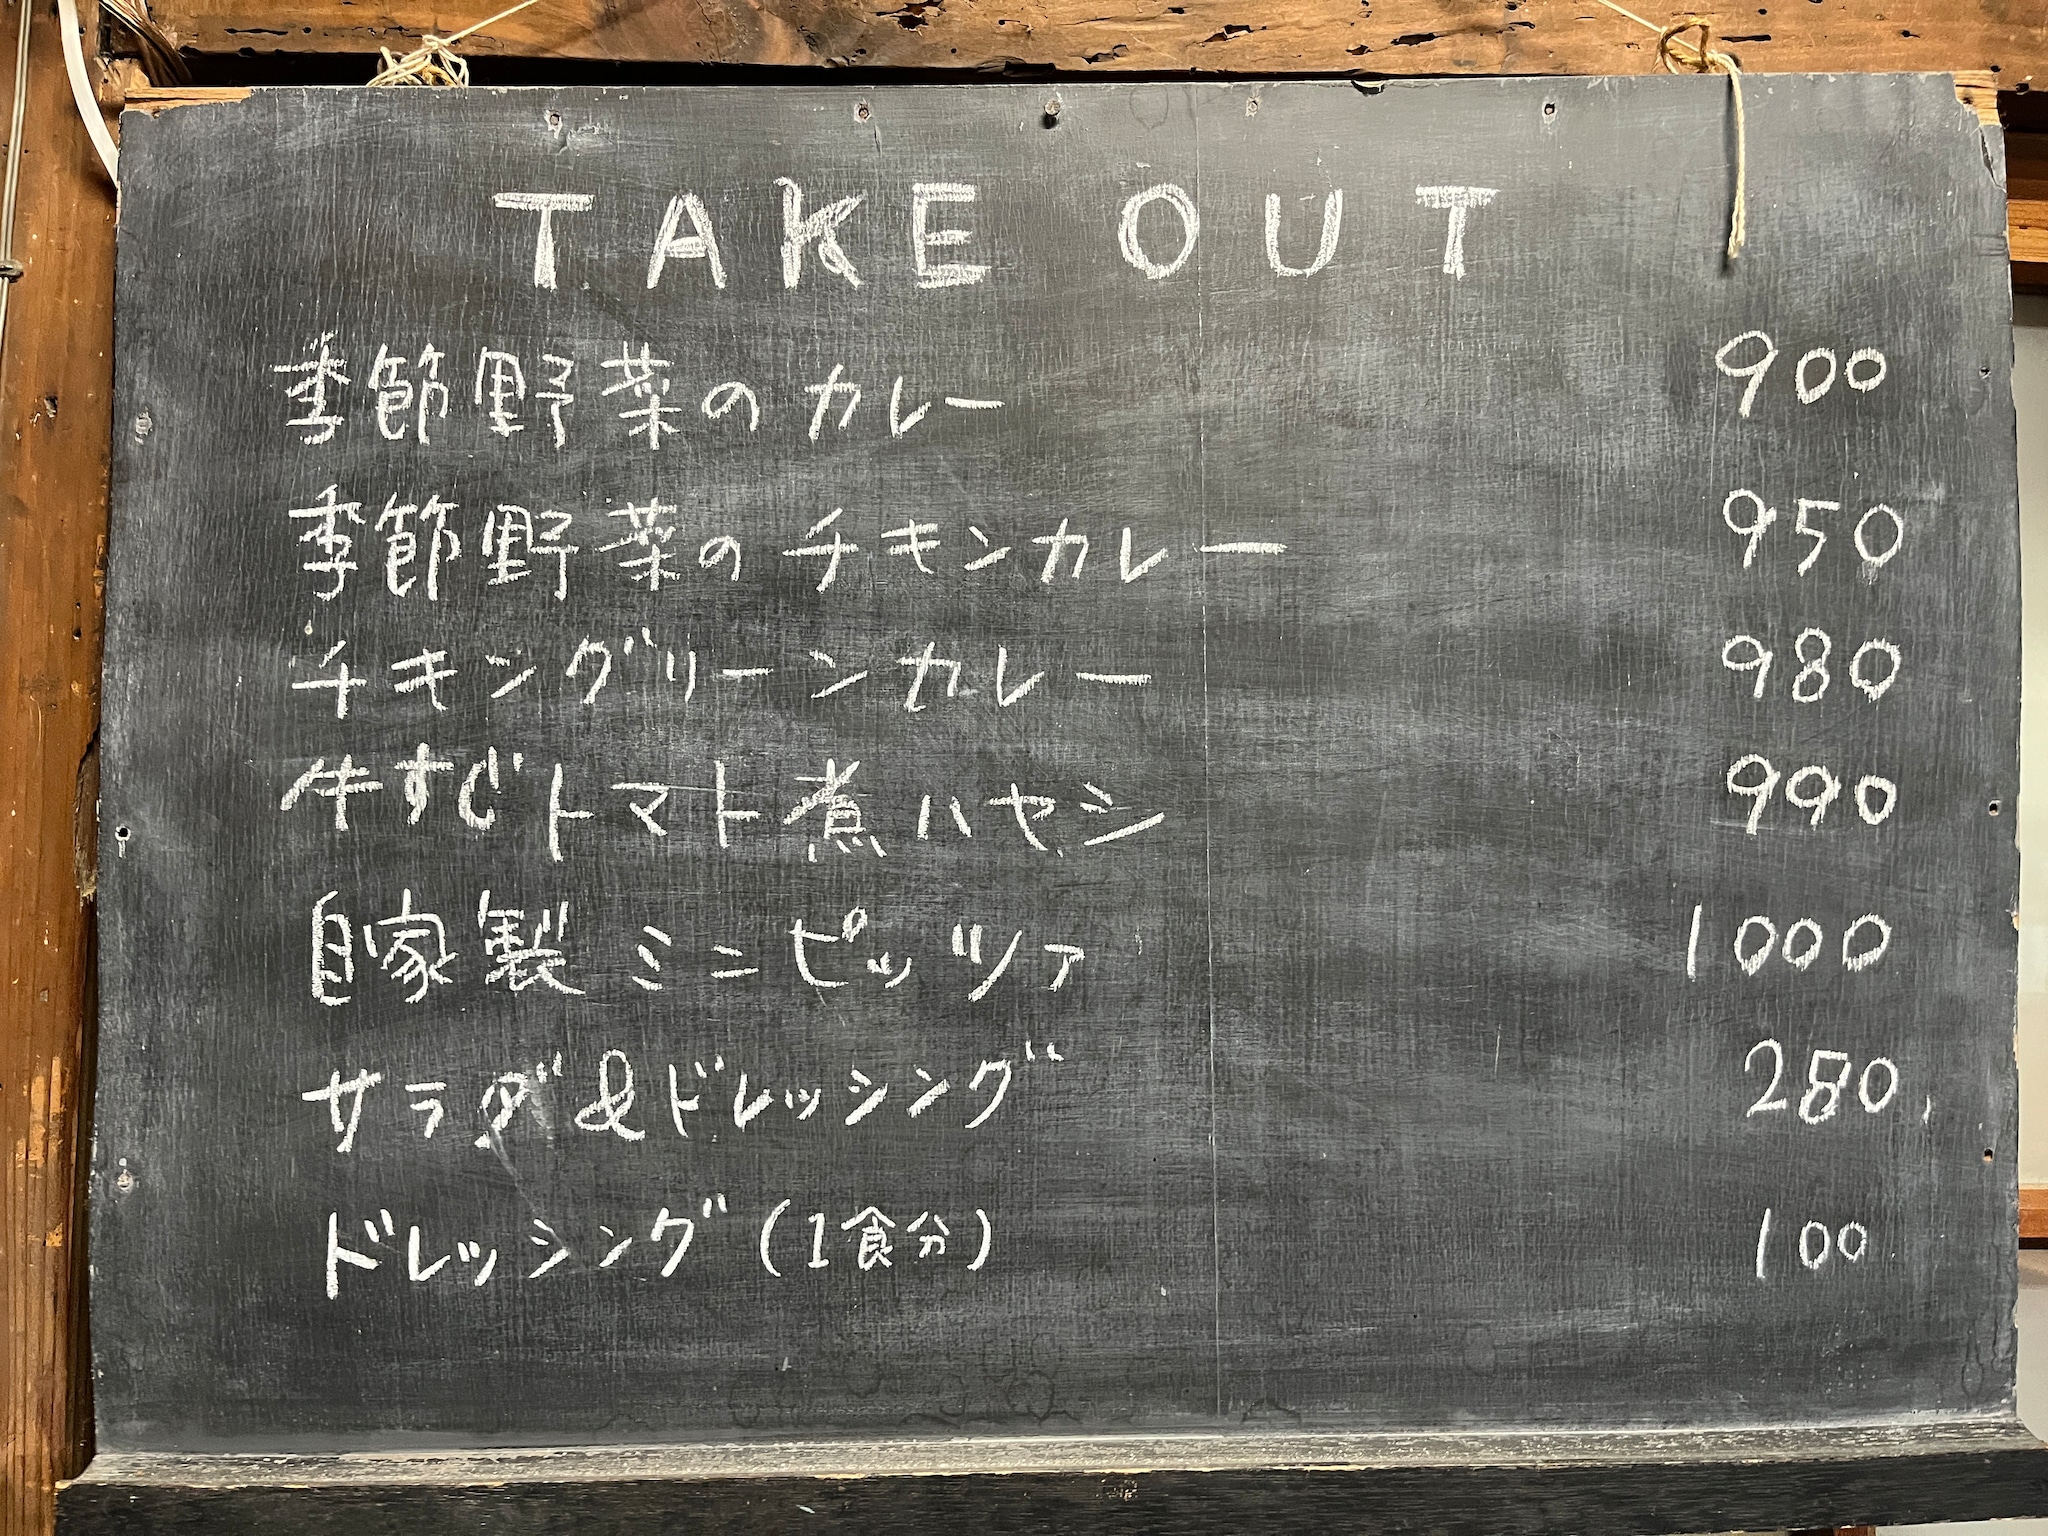 TAKE OUT
季節野菜のカレー 900
季節野菜のチキンカレー 950
チキングリーンカレー 980
牛すじトマト煮ハヤシ 990
自家製ミニピッツァ 1000
サラダ&ドレッシング 280
ドレッシング(1食分) 100